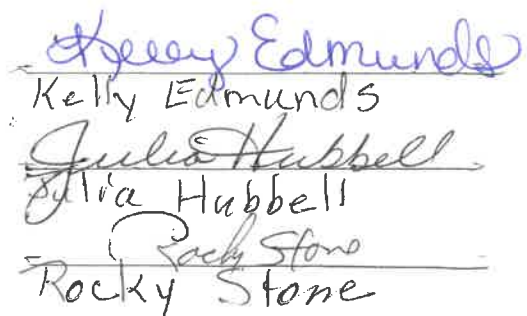 Kelly Edmunds
Kelly Edmunds
Julia Hubbell
Julia Hubbell
Rocky Stone
Rocky Stone